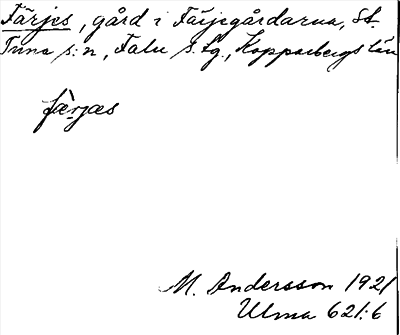 Färjes, gård i Färjegårdarna, St.
Tuna s:n, Falu s. lg., Kopparbergs län
fæ̀rjæs
M. Andersson 1921
Ulma 621:6